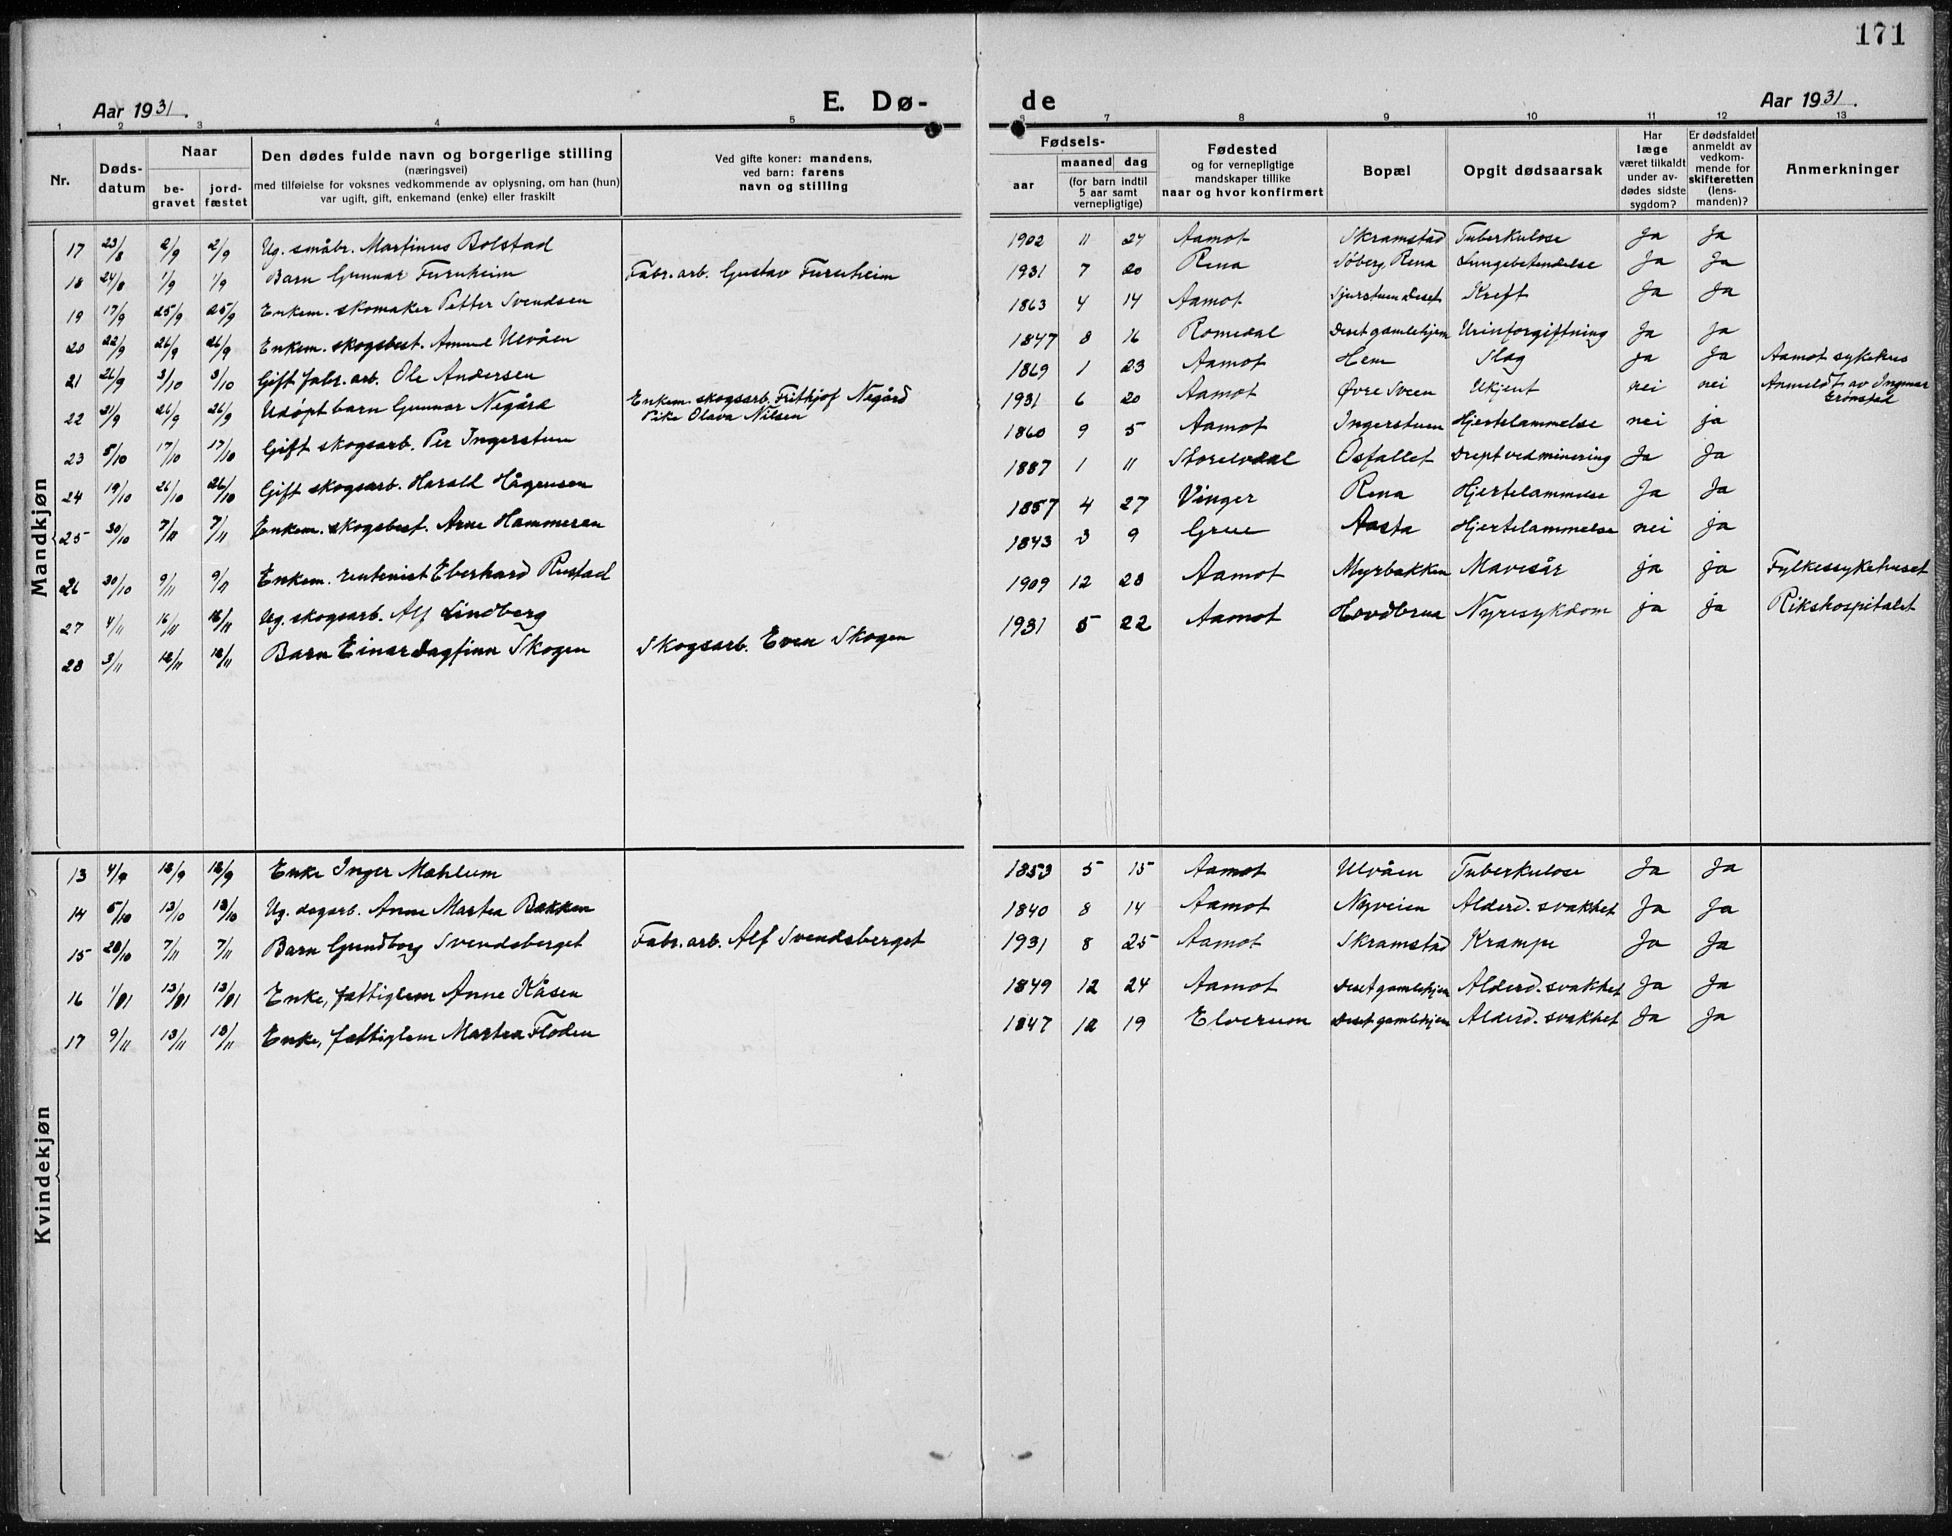 171
Aar 1931.
E. Dø-
de
Aar 1931.
1 2 3 4 5
6 7 8 9 10 11 12 13
Nr.
Døds-
datum
Naar
be-
gravet
jord-
fæstet
Den dødes fulde navn og borgerlige stilling
(næringsvei)
med tilføielse for voksnes vedkommende av oplysning, om han (hun)
var ugift, gift, enkemand (enke) eller fraskilt
Ved gifte koner: mandens,
ved barn: farens
navn og stilling
Fødsels-
aar
maaned
dag
(for barn indtil
5 aar samt
vernepligtige)
Fødested
og for vernepligtige
mandskaper tillike
naar og hvor konfirmert
Bopæl
Opgit dødsaarsak
Har
læge
været tilkaldt
under av-
dødes sidste
sygdom?
Er dødsfaldet
anmeldt av
vedkom-
mende for
skifteretten
(lens-
manden)?
Anmerkninger
Mandkjøn
17 23/8 2/9 2/9 Ug. småbr. Martinus Bolstad 1902 11 24 Aamot Skramstad Tuberkulose Ja Ja
18 24/8 1/9 1/9 Barn Gunnar Furuheim Fabr. arb. Gustav Furuheim 1931 7 20 Rena Söberg, Rena Lungebetendelse Ja Ja
19 17/9 25/9 25/9 Enkem. skomaker Petter Svendsen 1863 4 14 Aamot Sjurstuen Deset Kreft Ja Ja
20 22/9 26/9 26/9 Enkem. skogsbest. Ulvåen 1847 8 16 Romedal Deset gamlehjem Urinforgiftning Ja ja
21 26/9 3/10 3/10 Gift fabr. arb. Ole Andersen 1869 1 23 Aamot Hem Slag ja Ja Aamot sykehus
22 21/9 26/9 26/9 Udøpt barn Gunnar Negård Enkem. skogsarb. Frithjof Negård
Pike Olava Nilsen 1931 6 20 Aamot Øvre Sveen Ukjent nei nei Anmeldt av Ingmar
Grönstad
23 8/10 17/10 17/10 Gift skogsarb. Per Ingerstuen 1860 9 5 Aamot Ingerstuen Hjertelammelse nei ja
24 19/10 26/10 26/10 Gift skogsarb. Harald Hågensen 1887 1 11 Storelvdal Osfallet Drept ved minering Ja Ja
25 30/10 7/11 7/11 Enkem. skogsbest. Arne Hammeren 1857 4 27 Vinger Rena Hjertelammelse Ja Ja
26 30/10 9/11 9/11 Enkem. rentenist Eberhard Rustad 1843 3 9 Grue Aasta Hjertelammelse nei ja
27 4/11 16/11 16/11 Ug. skogsarb. Alf Lindberg 1909 12 28 Aamot Myrbakken Mavesår ja ja Fylkessykehuset
28 3/11 12/11 12/11 Barn Einar Dagfinn Skogen Skogsarb. Even Skogen 1931 5 22 Aamot Hovdbrua Nyresykdom ja ja Rikshospitalet
Kvindekjøn
13 4/9 12/9 12/9 Enke Inger Mæhlum 1853 5 15 Aamot Ulvåen Tuberkulose Ja Ja
14 5/10 13/10 13/10 Ug. dagarb. Anne Martea Bakken 1840 8 14 Aamot Nyveien Alderd. svakhet Ja Ja
15 28/10 7/11 7/11 Barn Gundborg Svendsberget Fabr. arb. Alf Svendsberget 1931 8 25 Aamot Skramstad Krampe Ja Ja
16 1/11 13/11 13/11 Enke, fattiglem Anne Kåsen 1849 12 24 Aamot Deset gamlehjem Alderd. svakhet Ja Ja
17 9/11 13/11 13/11 Enke, fattiglem Martea Floden 1847 12 19 Elverum Deset gamlehjem Alderd. svakhet Ja Ja